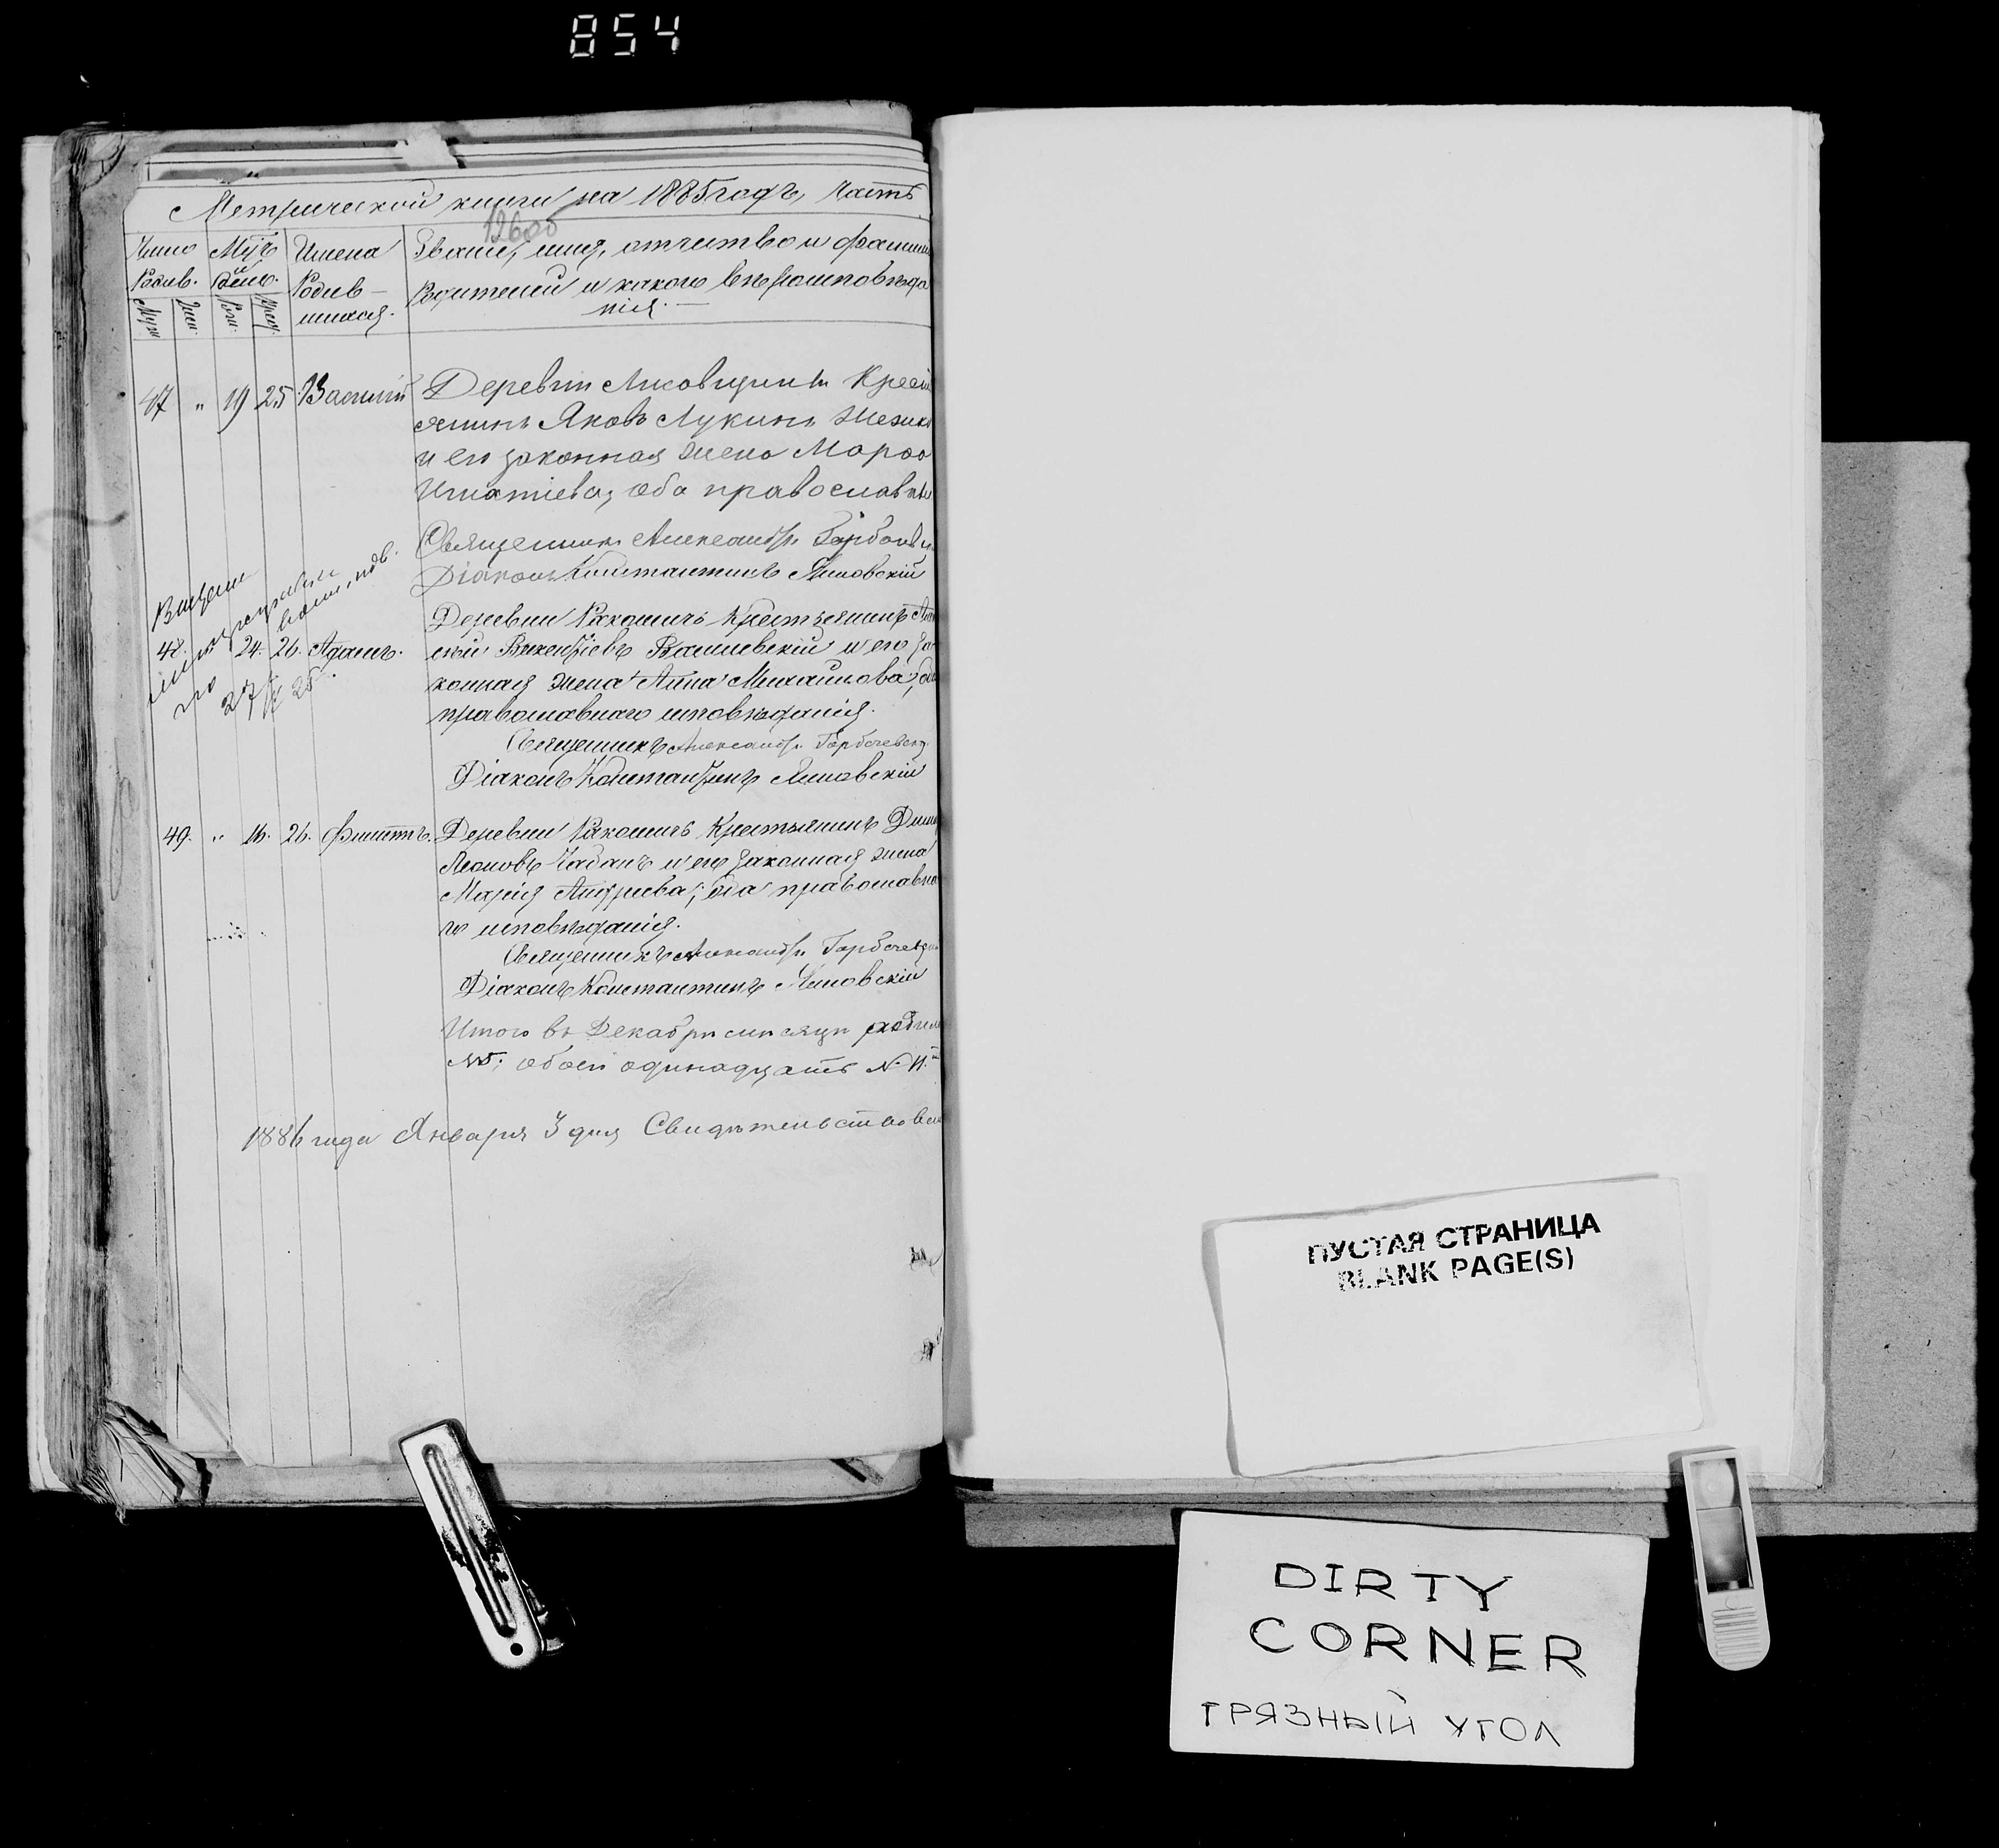 854
Метрической книги на 1885 годъ, часть
12606
Число Родив. Муж. Жен.
Мцъ и день. Рож. Крещ.
Имена Родив-шихся.
Званіе, имя, отчество и фамил
Родителей и какого вѣроисповѣда
нія.
47 " 19 25 Василій Деревни Крест
янинъ Яковъ Лукинъ
и его законная жена Марѳа
Игнатіева, оба православны
Священникъ Александръ Горбачевс
Діаконъ Константинъ Яновскій
Выдано
48. 24. 26. Адамъ. Деревни Ракошичъ Крестьянинъ
Викентіевъ Василевскій и его за
конная жена Анна Михайлова, оба
православнаго исповѣданія.
Священникъ Александръ Горбачевск
Діаконъ Константинъ Яновскій
49. " 16. 26. Филиппъ. Деревни Ракошичъ Крестьянинъ
Чабанъ и его законная жена
Марія Андреева; оба православна
го исповѣданія.
Священникъ Александръ Горбачевск
Діаконъ Константинъ Яновскій
Итого въ Декабрѣ мѣсяцѣ родил
обоего одинадцать N. 11.
1886 года Января 3 дня Свидѣтельствова
ПУСТАЯ СТРАНИЦА
BLANK PAGE(S)
DIRTY
CORNER
ГРЯЗНЫЙ УГОЛ